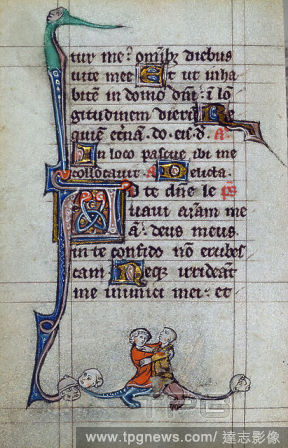 tur me? omībꝫ diebus
uite mee Et ut inha
bitem in domo dm̄. ī lo
gitudinem dierū Re
quiē etn̄am. do. eis. d. a.
In loco pascue ibi me
collocauit. a Delicta.
Ad te dn̄e le ps
uaui aīam me
ā. deus meus
in te confido nō erubes
cam Neqꝫ irrideāt
me inimici mei. et
www.tpgnews.com／達志影像